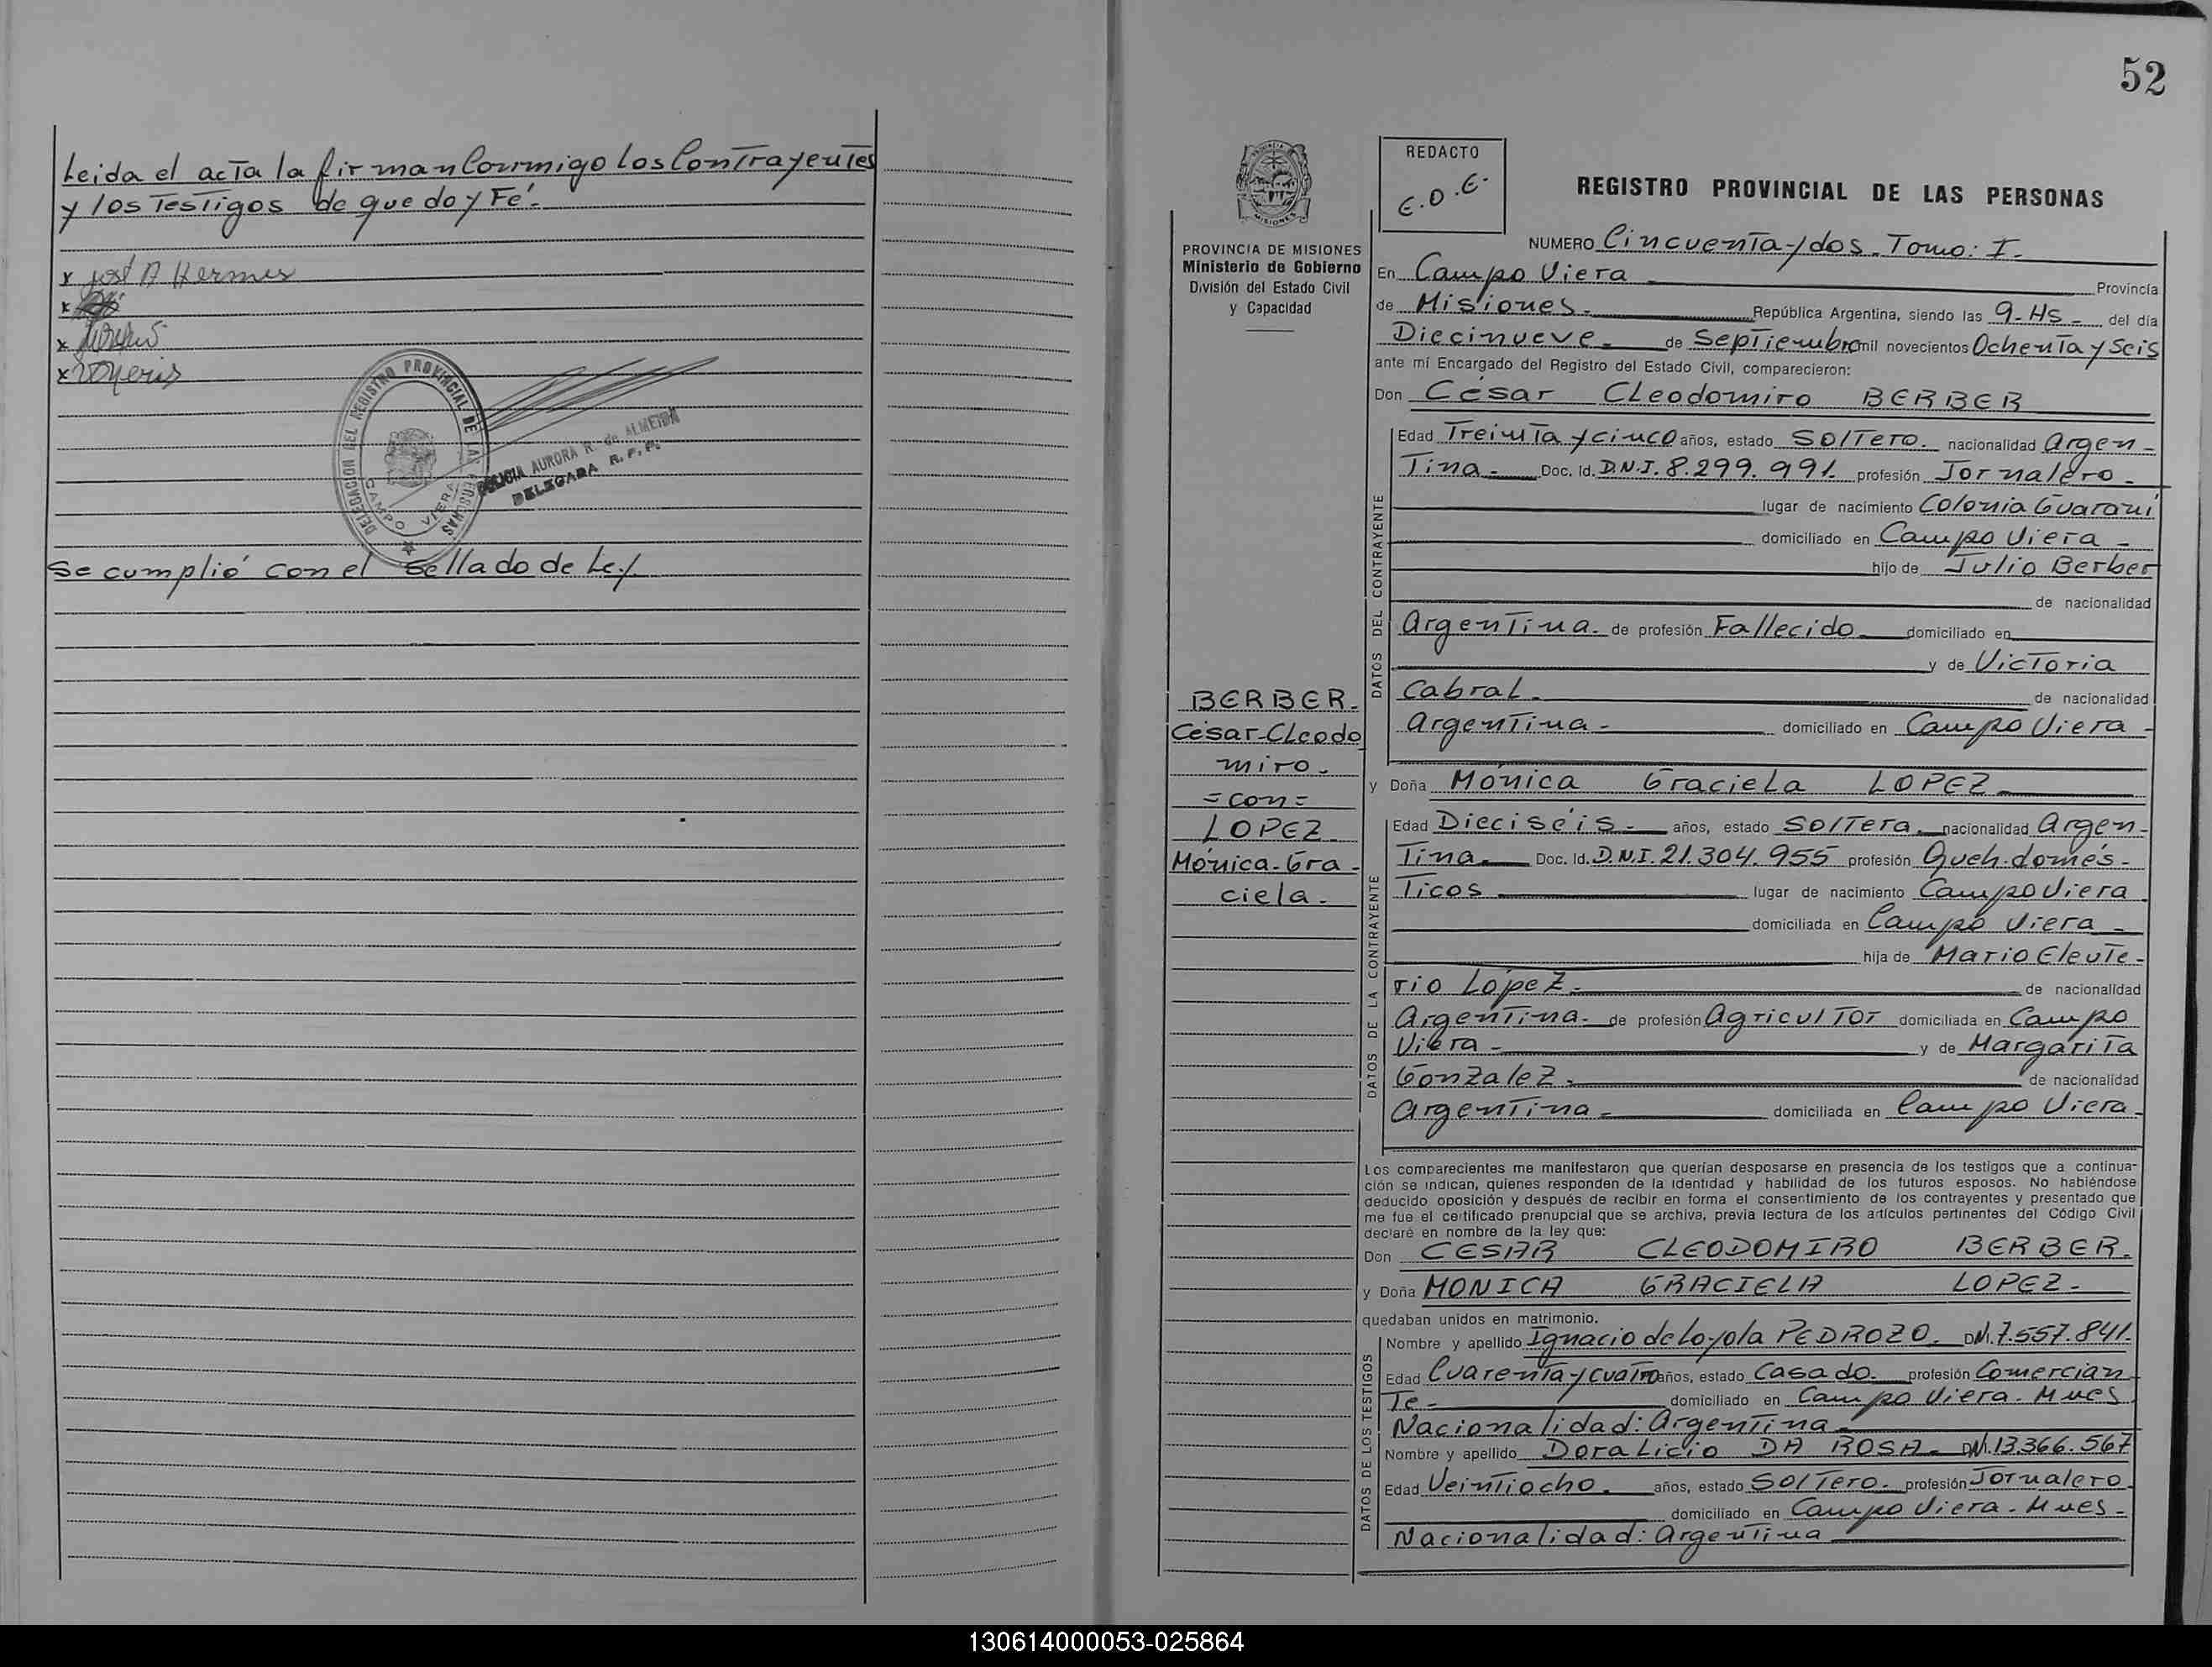 Leida el acTa la firman Conmigo los ConTrayentes
y los TesTigos de que doy Fé.-
x José A Hermes
x
x
x
DELEGACION DEL REGISTRO PROVINCIAL DE LAS PERSONAS
CAMPO VIERA
AURORA R. de ALMEIDA
DELEGADA R. P. P.
Se cumplió con el Sellado de Ley
52
REDACTO
E.D.E.
REGISTRO PROVINCIAL DE LAS PERSONAS
MISIONES
PROVINCIA DE MISIONES
Ministerio de Gobierno
División del Estado Civil
y Capacidad
BERBER.
César-CLeodo
miro.
=con=
LOPEZ
Mónica-Gra-
ciela.
NUMERO CincuenTa y dos. Tomo: I.
En Campo Viera Provincia
de Misiones. República Argentina, siendo las 9-Hs- del día
Diecinueve. de SepTiembre mil novecientos OchenTa y Seis
ante mí Encargado del Registro del Estado Civil, comparecieron:
Don César CLeodomiro BERBER
DATOS DEL CONTRAYENTE
Edad TreinTa y cinco años, estado SolTero. nacionalidad Argen-
Tina- Doc. Id. D.N.I. 8.299.991. profesión Jornalero-
lugar de nacimiento Colonia Guaraní
domiciliado en Campo Viera-
hijo de Julio Berber
de nacionalidad
ArgenTina. de profesión Fallecido domiciliado en
y de VicToria
Cabral. de nacionalidad
ArgenTina- domiciliado en Campo Viera-
y Doña Mónica Graciela LOPEZ
DATOS DE LA CONTRAYENTE
Edad Dieciséis- años, estado SolTera. nacionalidad Argen-
Tina. Doc. Id. D.N.I. 21.304.955 profesión Queh.domés-
Ticos lugar de nacimiento Campo Viera
domiciliada en Campo Viera-
hija de Mario EleuTe-
rio López- de nacionalidad
ArgenTina. de profesión AgriculTor domiciliada en Campo
Viera- y de MargariTa
Gonzalez. de nacionalidad
ArgenTina- domiciliada en Campo Viera-
Los comparecientes me manifestaron que querían desposarse en presencia de los testigos que a continua-
ción se indican, quienes responden de la identidad y habilidad de los futuros esposos. No habiéndose
deducido oposición y después de recibir en forma el consentimiento de los contrayentes y presentado que
me fue el certificado prenupcial que se archiva, previa lectura de los artículos pertinentes del Código Civil
declaré en nombre de la ley que:
Don CESAR CLEODOMIRO BERBER.
y Doña MONICA GRACIELA LOPEZ-
quedaban unidos en matrimonio.
DATOS DE LOS TESTIGOS
Nombre y apellido Ignacio de Loyola PEDROZO. DNI. 7.557.841.
Edad CuarenTa y cuaTro años, estado Casado. profesión Comercian
Te- domiciliado en Campo Viera. Mnes
Nacionalidad: ArgenTina
Nombre y apellido DoraLicio DA ROSA- DNI. 13.366.567
Edad VeinTiocho. años, estado SolTero. profesión Jornalero
domiciliado en Campo Viera. Mnes-
Nacionalidad: ArgenTina
130614000053-025864